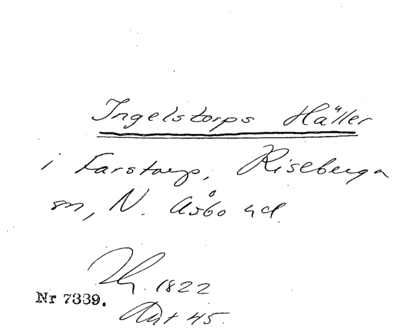 Ingelstorps Häller
i Farstorp, Riseberga
sn, N. Åsbo hd.
1822
Nr 7339.
Akt 45.